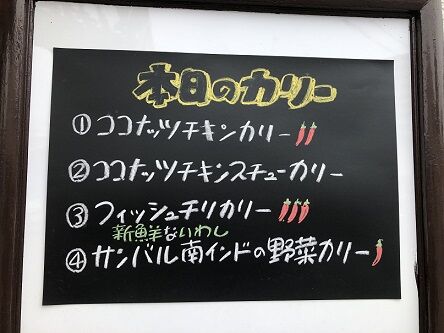 本日のカリー
①ココナッツチキンカリー
②ココナッツチキンスチューカリー
③フィッシュチリカリー
新鮮ないわし
④サンバル南インドの野菜カリー